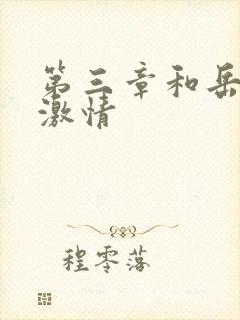 第三章和岳
激情
程零落